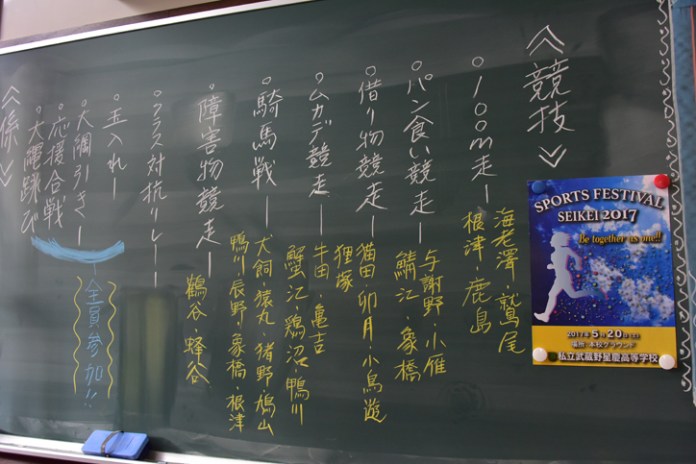 ≪競技≫
○100m走ー
海老澤・鷲尾
根津・鹿島
○パン食い競走ー
与謝野・小雁
鯖江・象橋
○借り物競走ー
猫田・卯月・小鳥遊
狸塚
○ムカデ競走ー
牛田・亀吉
蟹江・鶏沼・鴨川
○騎馬戦ー
犬飼・猿丸・猪野・鳩山
鴨川・辰野・象橋・根津
○障害物競走ー
鶴谷・蜂谷
○クラス対抗リレーー
○玉入れー
○大綱引きー
○応援合戦
○大縄跳び
全員参加!!
≪係≫
SPORTS FESTIVAL
SEIKEI 2017
Be together as one!!
2017年5月20日(土)
場所:本校グラウンド
私立武蔵野星慶高等学校